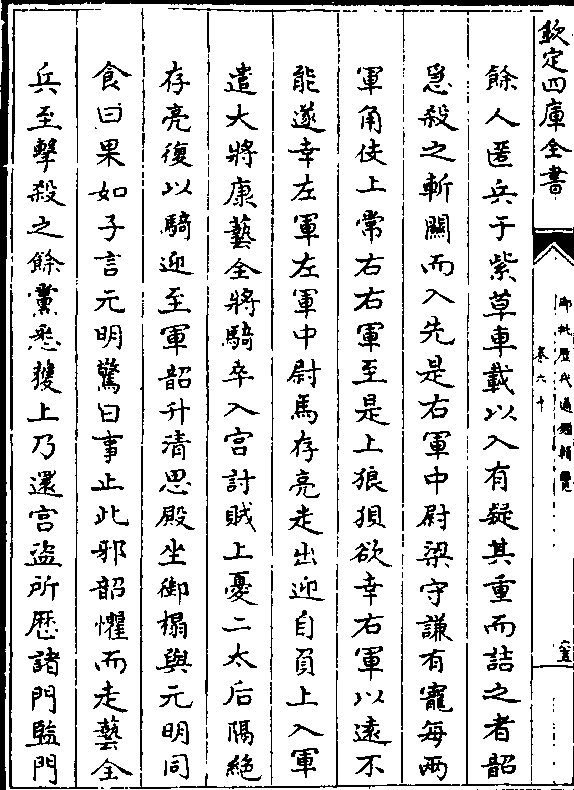 欽定四庫全書
御批歷代通鑑輯覽
卷六十
餘人匿兵于紫草車載以入有疑其重而詰之者韶
急殺之斬關而入先是右軍中尉梁守謙有寵每兩
軍角伎上常右右軍至是上狼狽欲幸右軍以遠不
能遂幸左軍左軍中尉馬存亮走出迎自負上入軍
遣大將康藝全將騎卒入宮討賊上憂二太后隔絶
存亮復以騎迎至軍韶升清思殿坐御榻與元明同
食曰果如子言元明驚曰事止此邪韶懼而走藝全
兵至擊殺之餘黨悉獲上乃還宮盜所歷諸門監門